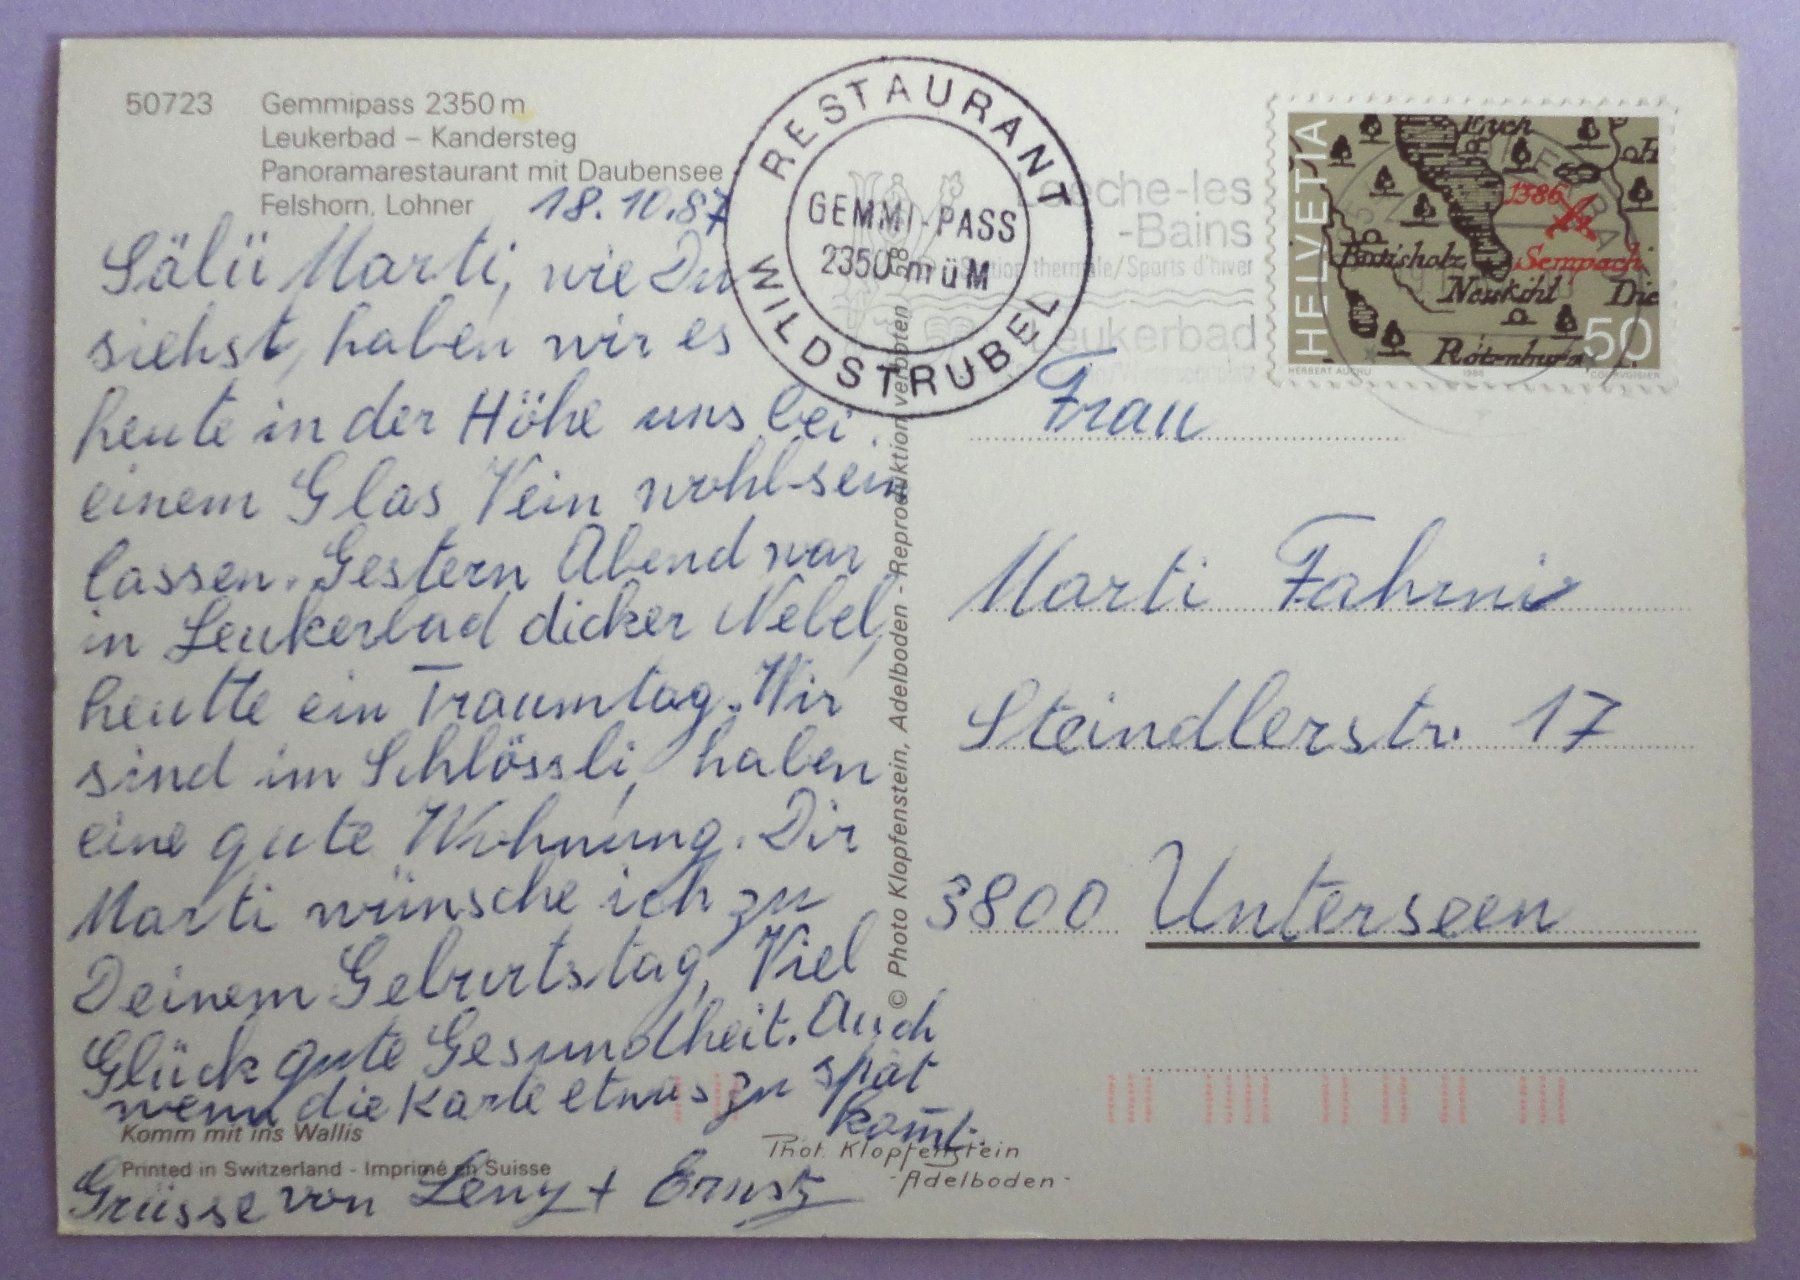 50723 Gemmipass 2350 m
Leukerbad – Kandersteg
Panoramarestaurant mit Daubensee
Felshorn, Lohner
18.10.87
Sälü Marti, wie Du
siehst, haben wir es
heute in der Höhe uns bei
einem Glas Vein wohl-sein
lassen. Gestern Abend war
in Leukerbad dicker Nebel,
heutte ein Traumtag. Wir
sind im Schlössli, haben
eine gute Wohnung. Dir
Marti wünsche ich zu
Deinem Geburtstag, Viel
Glück gute Gesundheit. Auch
wenn die Karte etwas zu spät
kom̄t.
Grüsse von Leny + Ernst
Komm mit ins Wallis
Printed in Switzerland - Imprimé en Suisse
Phot. Klopfenstein
-Adelboden-
© Photo Klopfenstein, Adelboden - Reproduktion verboten
RESTAURANT
GEMMI-PASS
2350 müM
WILDSTRUBEL
Loèche-les
-Bains
Station thermale/Sports d'hiver
Leukerbad
HELVETIA
Eych
1386
Sempach
Neukihl
Rotenburg
50
HERBERT AUCHLI 1986 COURVOISIER
Frau
Marti Fahrni
Steindlerstr. 17
3800 Unterseen